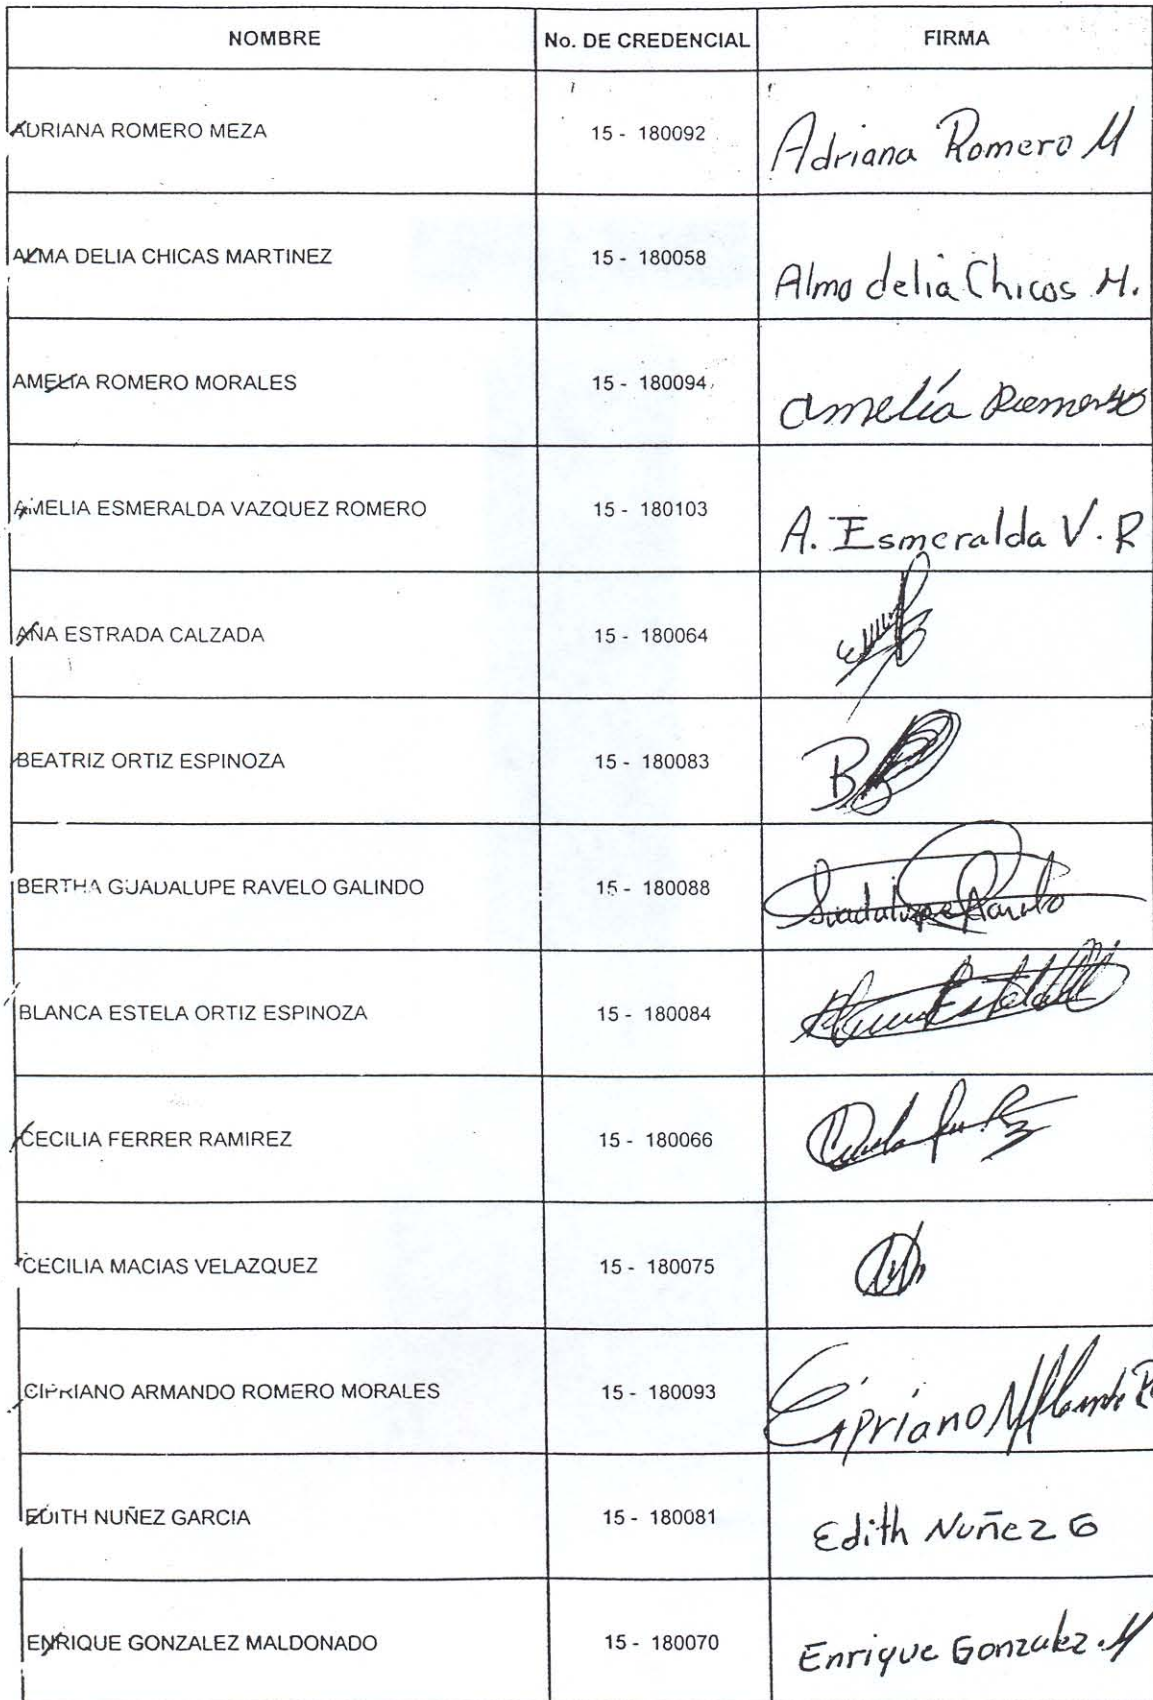 NOMBRE No. DE CREDENCIAL FIRMA
ADRIANA ROMERO MEZA 15 - 180092 Adriana Romero M
ALMA DELIA CHICAS MARTINEZ 15 - 180058 Alma delia Chicas M.
AMELIA ROMERO MORALES 15 - 180094 Amelía
AMELIA ESMERALDA VAZQUEZ ROMERO 15 - 180103 A. Esmeralda V. R
ANA ESTRADA CALZADA 15 - 180064
BEATRIZ ORTIZ ESPINOZA 15 - 180083 B
BERTHA GUADALUPE RAVELO GALINDO 15 - 180088 Guadalupe Ravelo
BLANCA ESTELA ORTIZ ESPINOZA 15 - 180084
CECILIA FERRER RAMIREZ 15 - 180066
CECILIA MACIAS VELAZQUEZ 15 - 180075
CIPRIANO ARMANDO ROMERO MORALES 15 - 180093 Cipriano
EDITH NUÑEZ GARCIA 15 - 180081 Edith Nuñez G
ENRIQUE GONZALEZ MALDONADO 15 - 180070 Enrique Gonzalez M